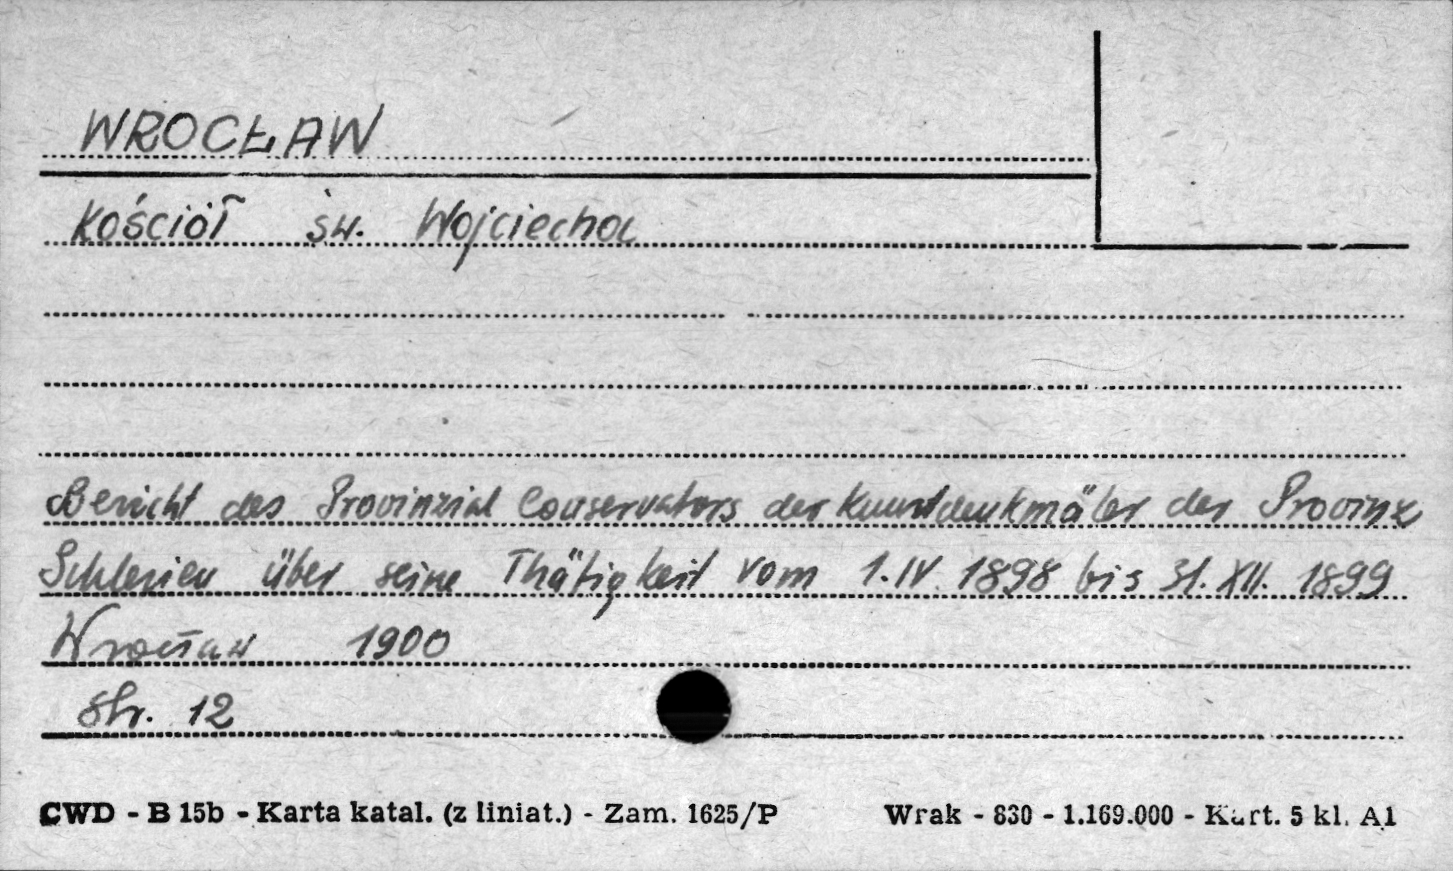 WROCŁAW
Kościół św. Wojciecha
Bericht des Provinzial Conservators der Kunstdenkmäler der Provinz
Schlesien über seine Thätigkeit vom 1.IV. 1898 bis 31.XII. 1899
Wrocław 1900
str. 12
CWD - B 15b - Karta katal. (z liniat.) - Zam. 1625/P Wrak - 830 - 1.169.000 - Kart. 5 kl. A1